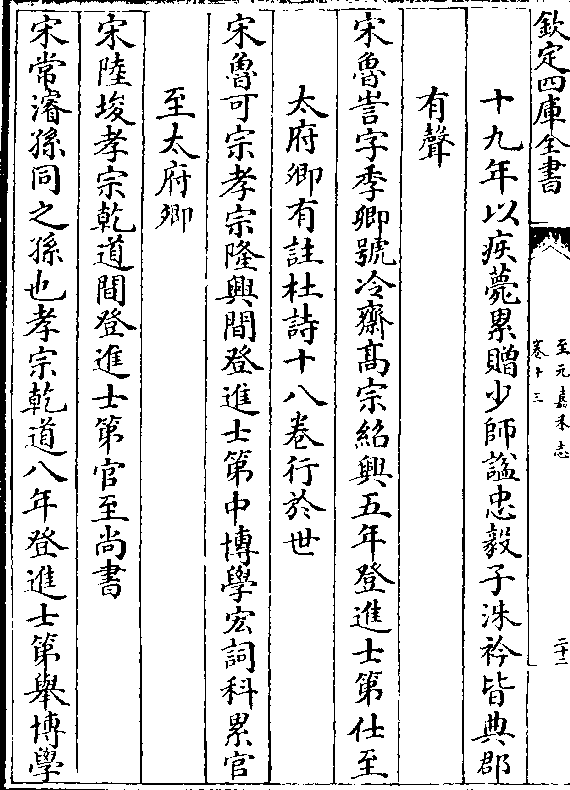 欽定四庫全書
至元嘉禾志
卷十三
二十二
十九年以疾薨累贈少師諡忠毅子洙衿皆典郡
有聲
宋魯訔字季卿號冷齋髙宗紹興五年登進士第仕至
太府卿有註杜詩十八卷行於世
宋魯可宗孝宗隆興間登進士第中博學宏詞科累官
至太府卿
宋陸埈孝宗乾道間登進士第官至尚書
宋常濬孫同之孫也孝宗乾道八年登進士第舉博學